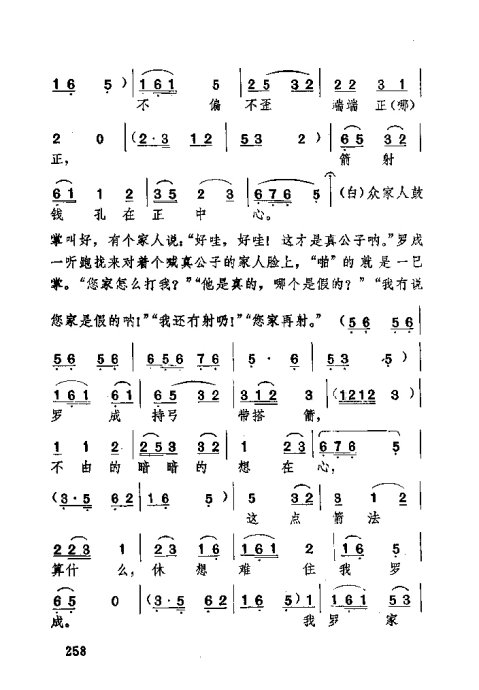 1 6 5 ) | 1 6 1 5 | 2 5 3 2 | 2 2 3 1 |
不 偏 不歪 端端 正(哪)
2 0 | ( 2 · 3 1 2 | 5 3 2 ) | 6 5 3 2 |
正, 箭 射
6 1 1 2 | 3 5 2 3 | 6 7 6 5 (白)众家人鼓
钱 孔 在 正 中 心。
掌叫好,有个家人说:“好哇,好哇!这才是真公子呐。”罗成
一听跑找来对着个喊真公子的家人脸上,“啪”的就是一巴
掌。“您家怎么打我?”“他是真的,哪个是假的?”“我冇说
您家是假的呐!”“我还冇射哟!”“您家再射。” ( 5 6 5 6 |
5 6 5 6 | 6 5 6 7 6 | 5 · 6 | 5 3 5 ) |
1 6 1 6 1 | 6 5 3 2 | 3 1 2 3 | ( 1 2 1 2 3 ) |
罗 成 持弓 带搭 箭,
1 1 2 | 2 5 3 3 2 | 1 2 3 | 6 7 6 5 |
不 由 的 暗暗 的 想 在 心,
( 3 · 5 6 2 | 1 6 5 ) | 5 3 2 | 3 1 2 |
这 点 箭 法
2 2 3 1 | 2 3 1 6 | 1 6 1 2 | 1 6 5 |
算什 么, 休 想 难 住 我 罗
6 5 0 | ( 3 · 5 6 2 | 1 6 5 ) 1 | 1 6 1 5 3 |
成。 我 罗 家
258